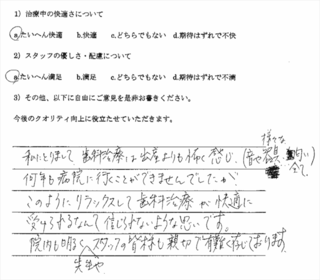 1）治療中の快適さについて
a.たいへん快適 b.快適 c.どちらでもない d.期待はずれで不快
2）スタッフの優しさ・配慮について
a.たいへん満足 b.満足 c.どちらでもない d.期待はずれで不満
3）その他、以下に自由にご意見を是非お書きください。
今後のクオリティ向上に役立たせていただきます。
様々な
私にとりまして歯科治療は出産よりも怖く感じ、(音や 匂い)
全て
何年も病院に行くことができませんでしたが
このようにリラックスして歯科治療が快適に
受けられるなんて信じられないような思いです。
院内も明るくスタッフの皆様も親切で有難く存じております
先生や